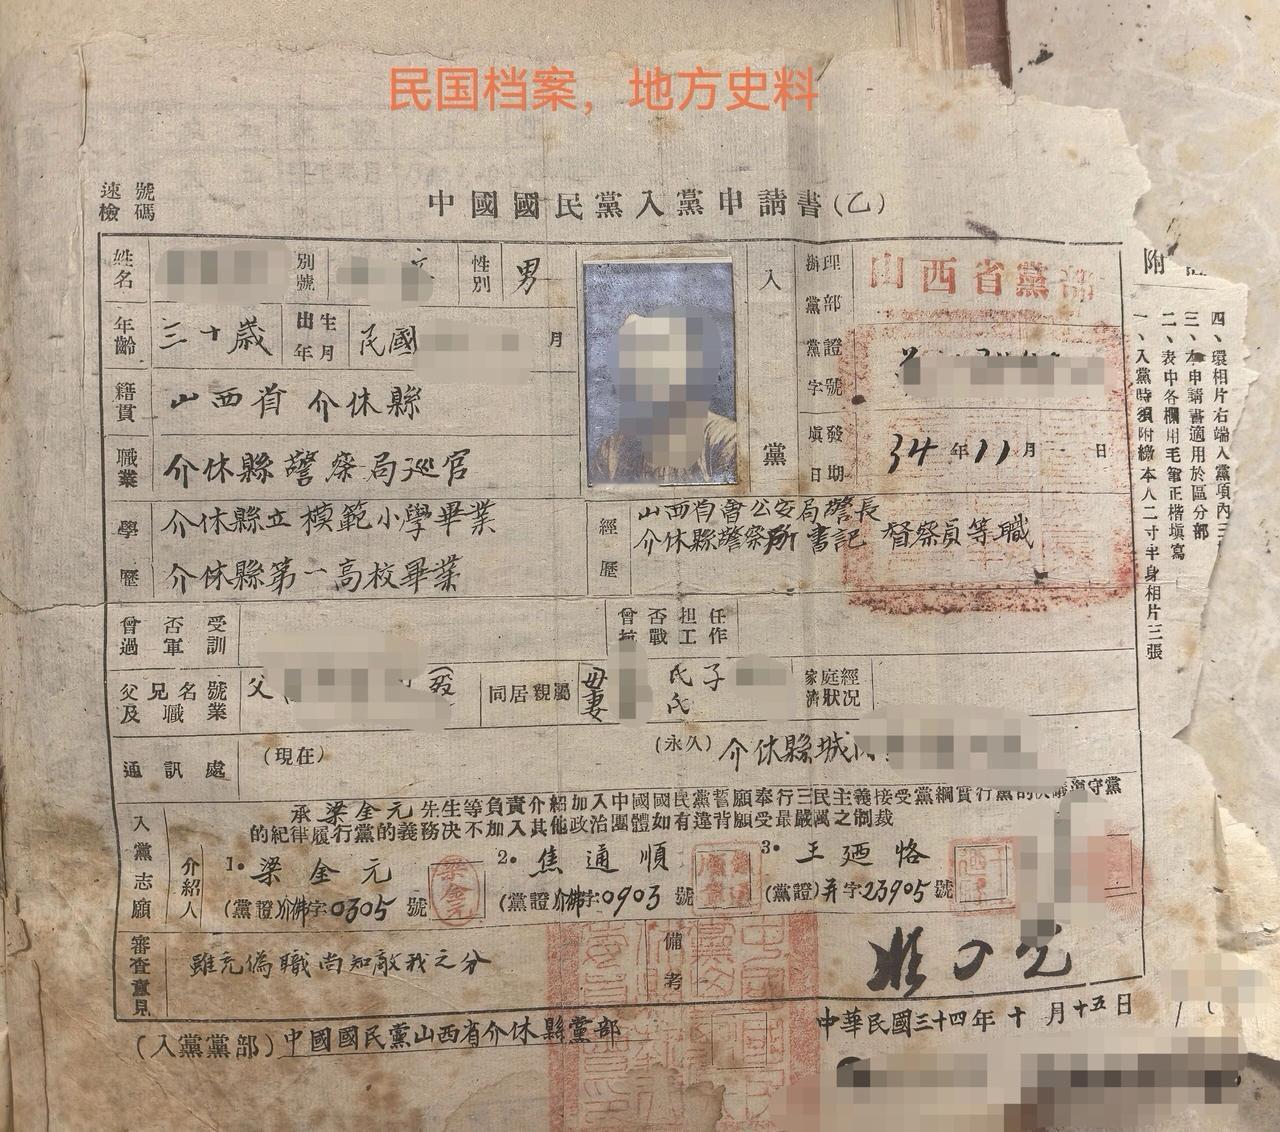 民国档案，地方史料
速檢號碼
中國國民黨入黨申請書(乙)
姓名
別號
性別 男
年齡 三十歲
出生年月 民國 月
籍貫 山西省介休縣
職業 介休縣警察局巡官
學歷 介休縣立模範小學畢業
介休縣第一高校畢業
入黨
辦理黨部 山西省黨部
黨證字號
填發日期 34年11月 日
經歷 山西省會公安局警長
介休縣警察所書記 督察員等職
曾否受過軍訓
曾否担任抗戰工作
父兄名號及職業 父 歿
同居親屬 母 氏 子
妻 氏
家庭經濟狀况
通訊處 (現在)
(永久) 介休縣城
入黨志願
承梁金元先生等負責介紹加入中國國民黨誓願奉行三民主義接受黨綱實行黨的決議遵守黨
的紀律履行黨的義務決不加入其他政治團體如有違背願受最嚴厲之制裁
介紹人
1. 梁金元
(黨證)介休字0305號
梁金元
2. 焦通順
(黨證)介休字0903號
3. 王廼恪
(黨證)并字23905號
審查意見 雖充偽職尚知敵我之分
備考
(入黨黨部)中國國民黨山西省介休縣黨部
中華民國三十四年十月十五日
附
一、入黨時須附繳本人二寸半身相片三張
二、表中各欄用毛筆正楷填寫
三、本申請書適用於區分部
四、環相片右端入黨項內